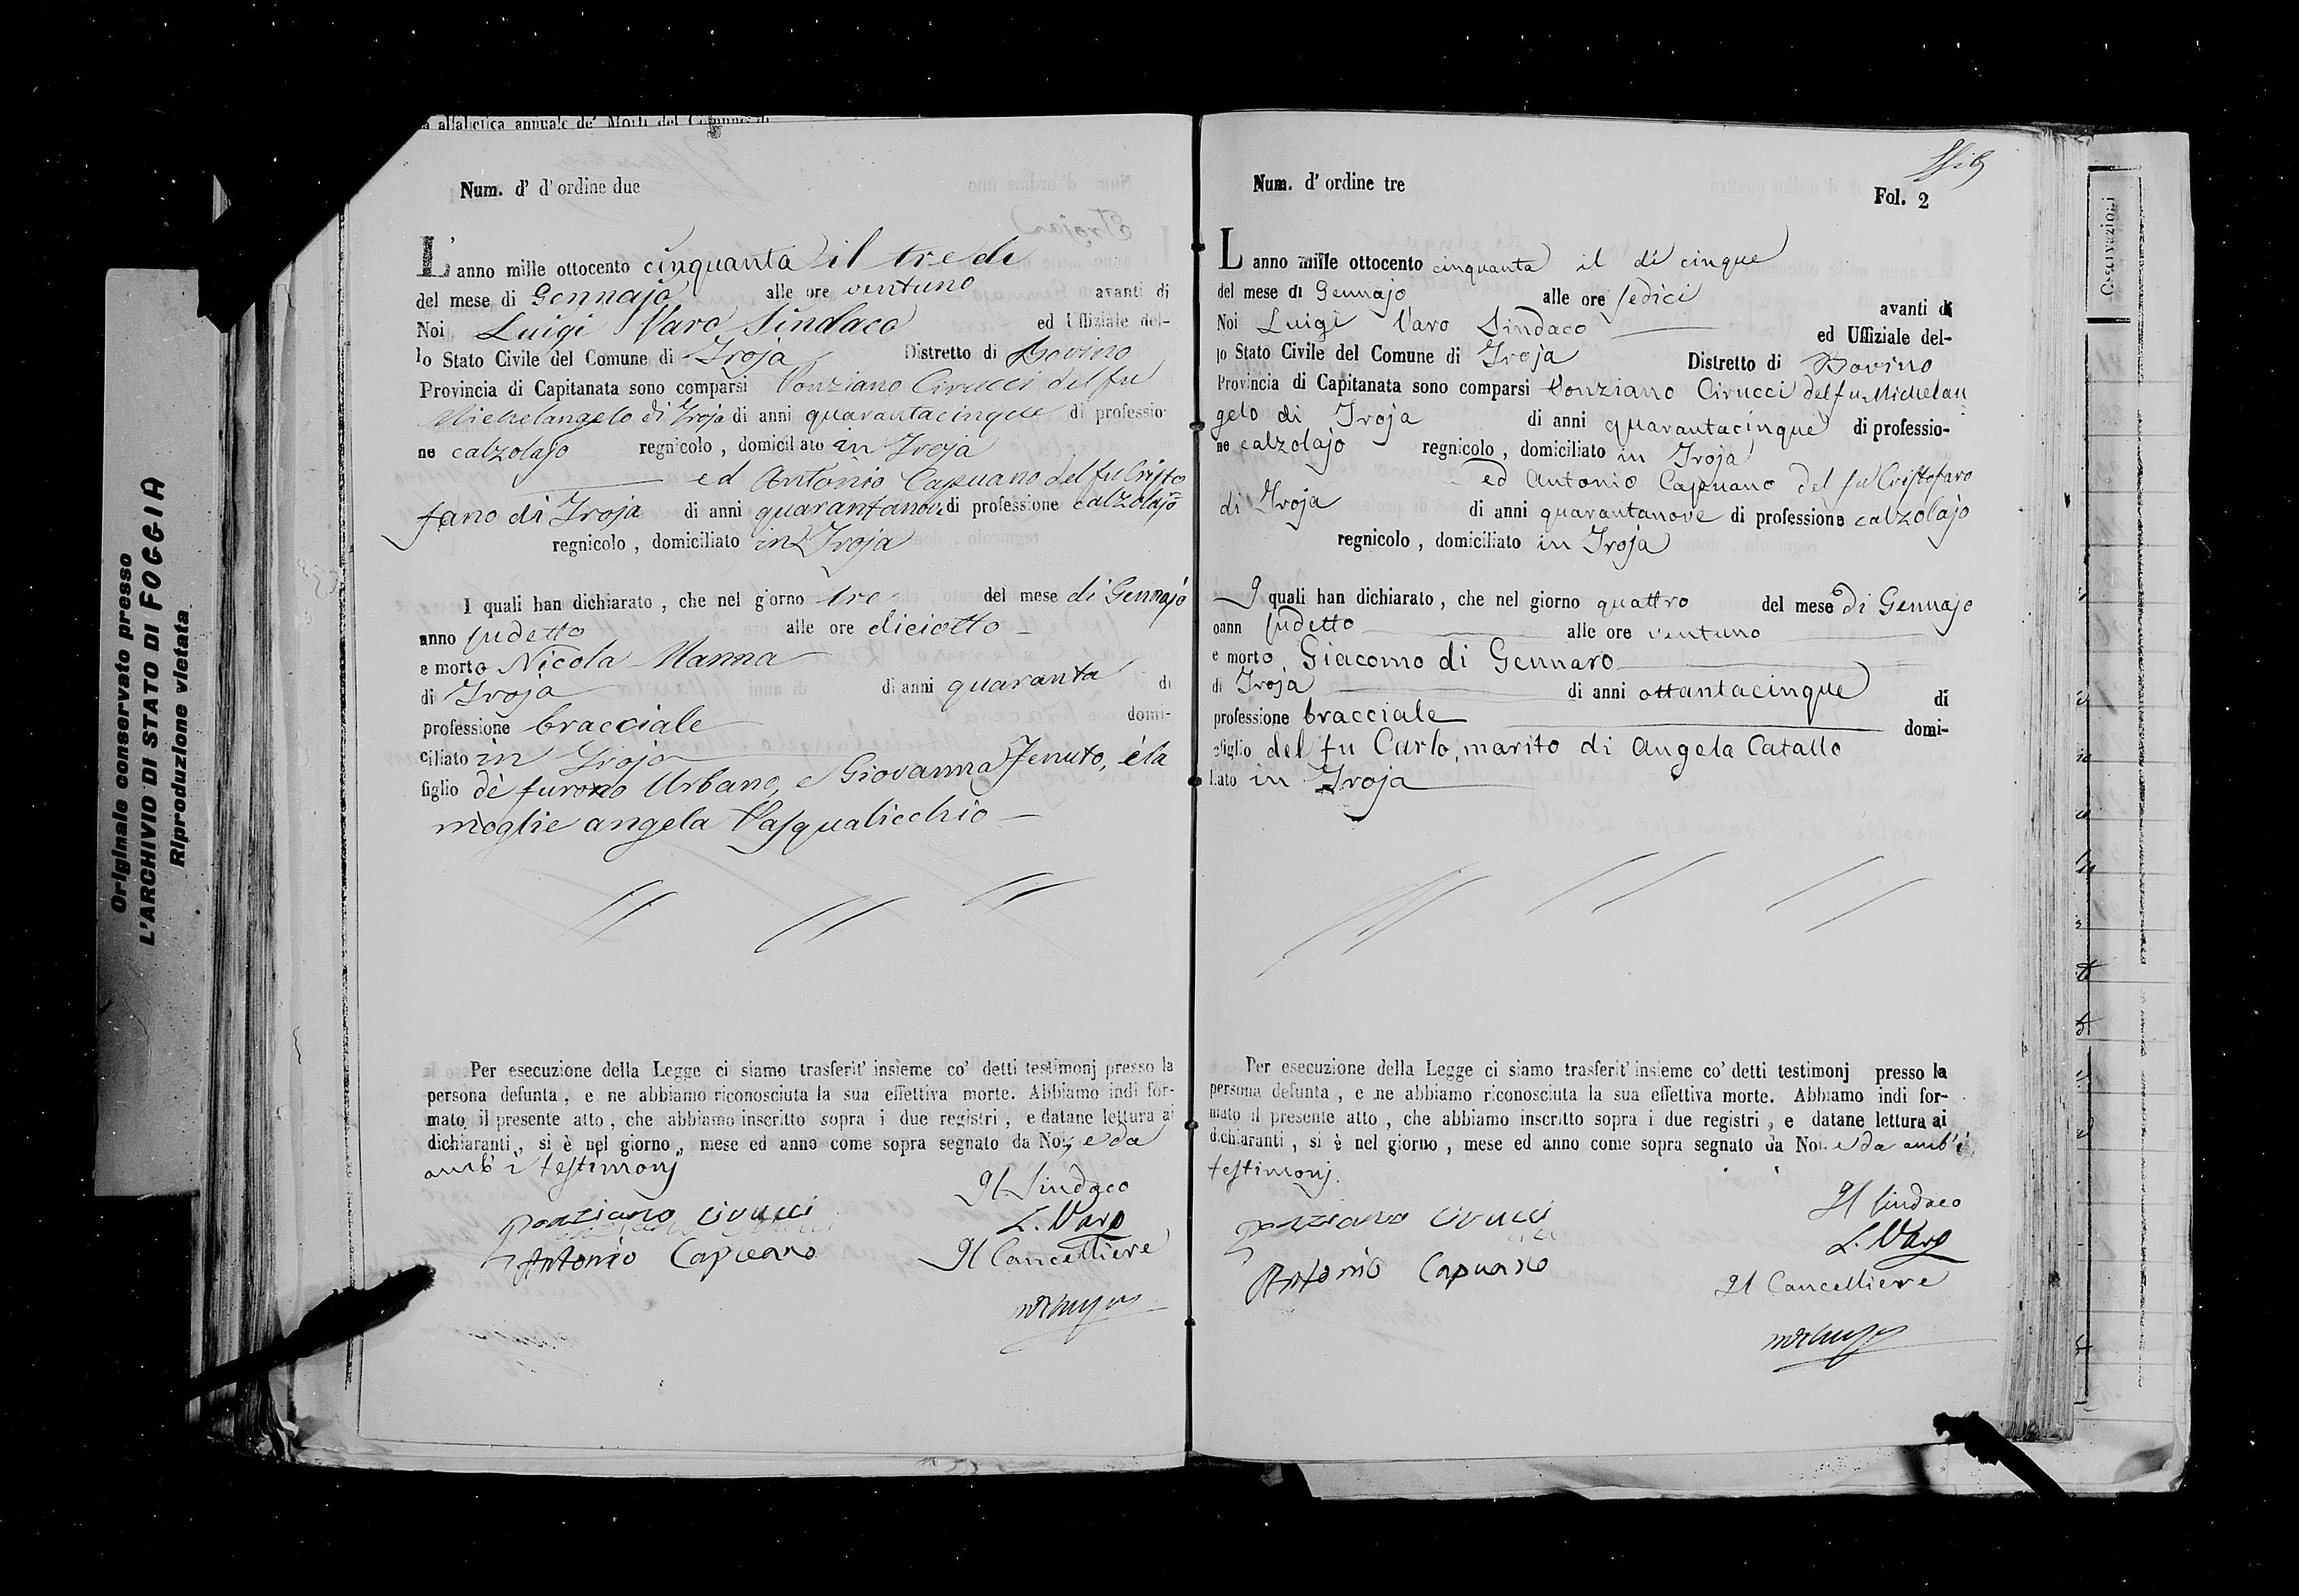 Originale conservato presso
L'ARCHIVIO DI STATO DI FOGGIA
Riproduzione vietata
a alfabetica annuale de' Morti del Comune di
Num. d' d' ordine due
L' anno mille ottocento cinquanta il tre di
del mese di Gennajo alle ore ventuno avanti di
Noi Luigi Varo Sindaco ed Uffiziale del-
lo Stato Civile del Comune di Troja Distretto di Bovino
Provincia di Capitanata sono comparsi Ponziano Cirucci del fu
Michelangelo di Troja di anni quarantacinque di professio-
ne calzolajo regnicolo , domiciliato in Troja
ed Antonio Capuano del fu Cristo
faro di Troja di anni quarantanove di professione calzolajo
regnicolo , domiciliato in Troja
I quali han dichiarato , che nel giorno tre del mese di Gennajo
anno sudetto alle ore diciotto
e morto Nicola Manna
di Troja di anni quaranta di
professione bracciale domi-
ciliato in Troja
figlio de furono Urbano, e Giovanna Jenuto, è la
moglie angela Pasqualicchio
Per esecuzione della Legge ci siamo trasferit' insieme co' detti testimonj presso la
persona defunta , e ne abbiamo riconosciuta la sua effettiva morte. Abbiamo indi for-
mato il presente atto , che abbiamo inscritto sopra i due registri , e datane lettura ai
dichiaranti , si è nel giorno , mese ed anno come sopra segnato da Noi, e da
amb' i testimonj
Il Sindaco
Ponziano Cirucci
L. Varo
Antonio Capuano
Il Cancelliere
Num. d' ordine tre
Fol. 2
L anno mille ottocento cinquanta il di cinque
del mese di Gennajo alle ore sedici avanti di
Noi Luigi Varo Sindaco ed Uffiziale del-
lo Stato Civile del Comune di Troja Distretto di Bovino
Provincia di Capitanata sono comparsi Ponziano Cirucci del fu Michelan
gelo di Troja di anni quarantacinque di professio-
ne calzolajo regnicolo , domiciliato in Troja
ed Antonio Capuano del fu Cristofaro
di Troja di anni quarantanove di professione calzolajo
regnicolo , domiciliato in Troja
I quali han dichiarato , che nel giorno quattro del mese di Gennajo
oann sudetto alle ore ventuno
e morto Giacomo di Gennaro
di Troja di anni ottantacinque di
professione bracciale domi-
figlio del fu Carlo, marito di Angela Catallo
liato in Troja
Per esecuzione della Legge ci siamo trasferit' insieme co' detti testimonj presso la
persona defunta , e ne abbiamo riconosciuta la sua effettiva morte. Abbiamo indi for-
mato il presente atto , che abbiamo inscritto sopra i due registri , e datane lettura ai
dichiaranti , si è nel giorno , mese ed anno come sopra segnato da Noi. e da amb' i
testimonj.
Il Sindaco
Ponziano Cirucci
L. Varo
Antonio Capuano
Il Cancelliere
Osservazioni